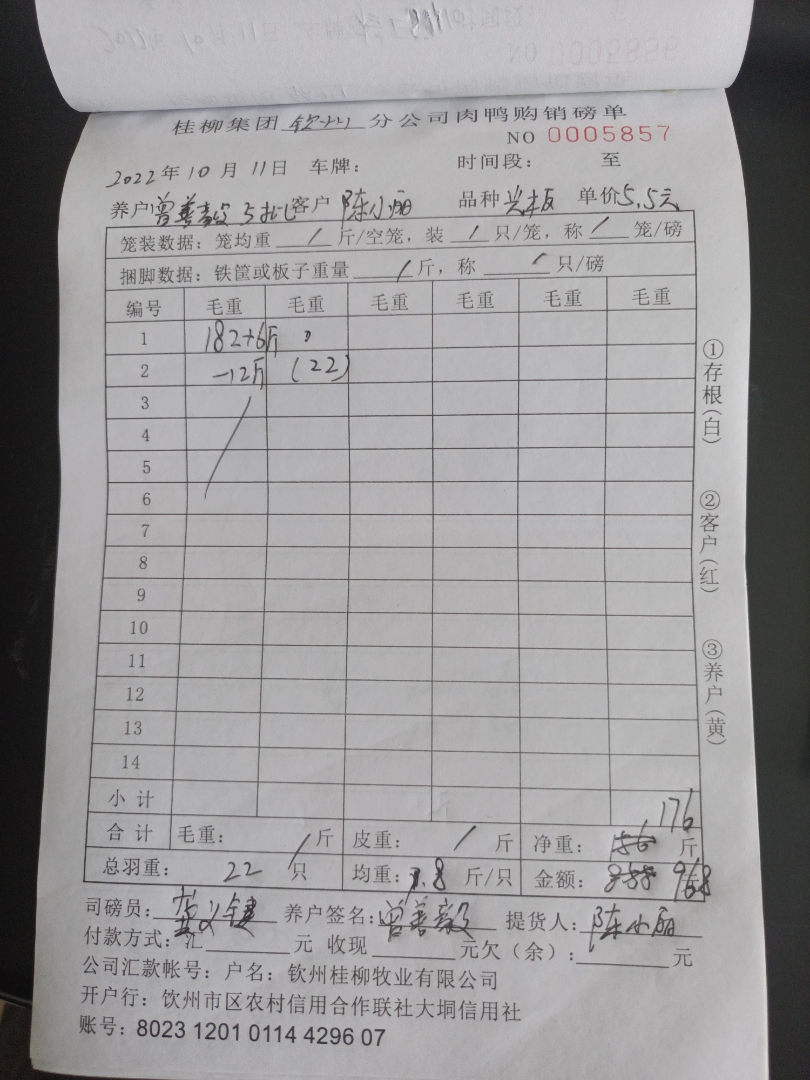 桂柳集团 钦州 分公司肉鸭购销磅单
NO 0005857
2022年10月11日 车牌: 时间段: 至
养户 曾善毅 客户 陈小丽 品种 单价5.5元
笼装数据: 笼均重 / 斤/空笼, 装 / 只/笼, 称 / 笼/磅
捆脚数据: 铁筐或板子重量 / 斤, 称 / 只/磅
编号 毛重 毛重 毛重 毛重 毛重 毛重
1 182+6斤
2 -12斤 (22)
3
4
5
6
7
8
9
10
11
12
13
14
小计
176
合计 毛重: / 斤 皮重: / 斤 净重: 156 斤
总羽重: 22 只 均重: .8 斤/只 金额: 968
司磅员: 养户签名: 曾善毅 提货人: 陈小丽
付款方式: 汇 元 收现 元欠(余): 元
公司汇款帐号: 户名: 钦州桂柳牧业有限公司
开户行: 钦州市区农村信用合作联社大垌信用社
账号: 8023 1201 0114 4296 07
①存根(白)
②客户(红)
③养户(黄)
NO 0005856